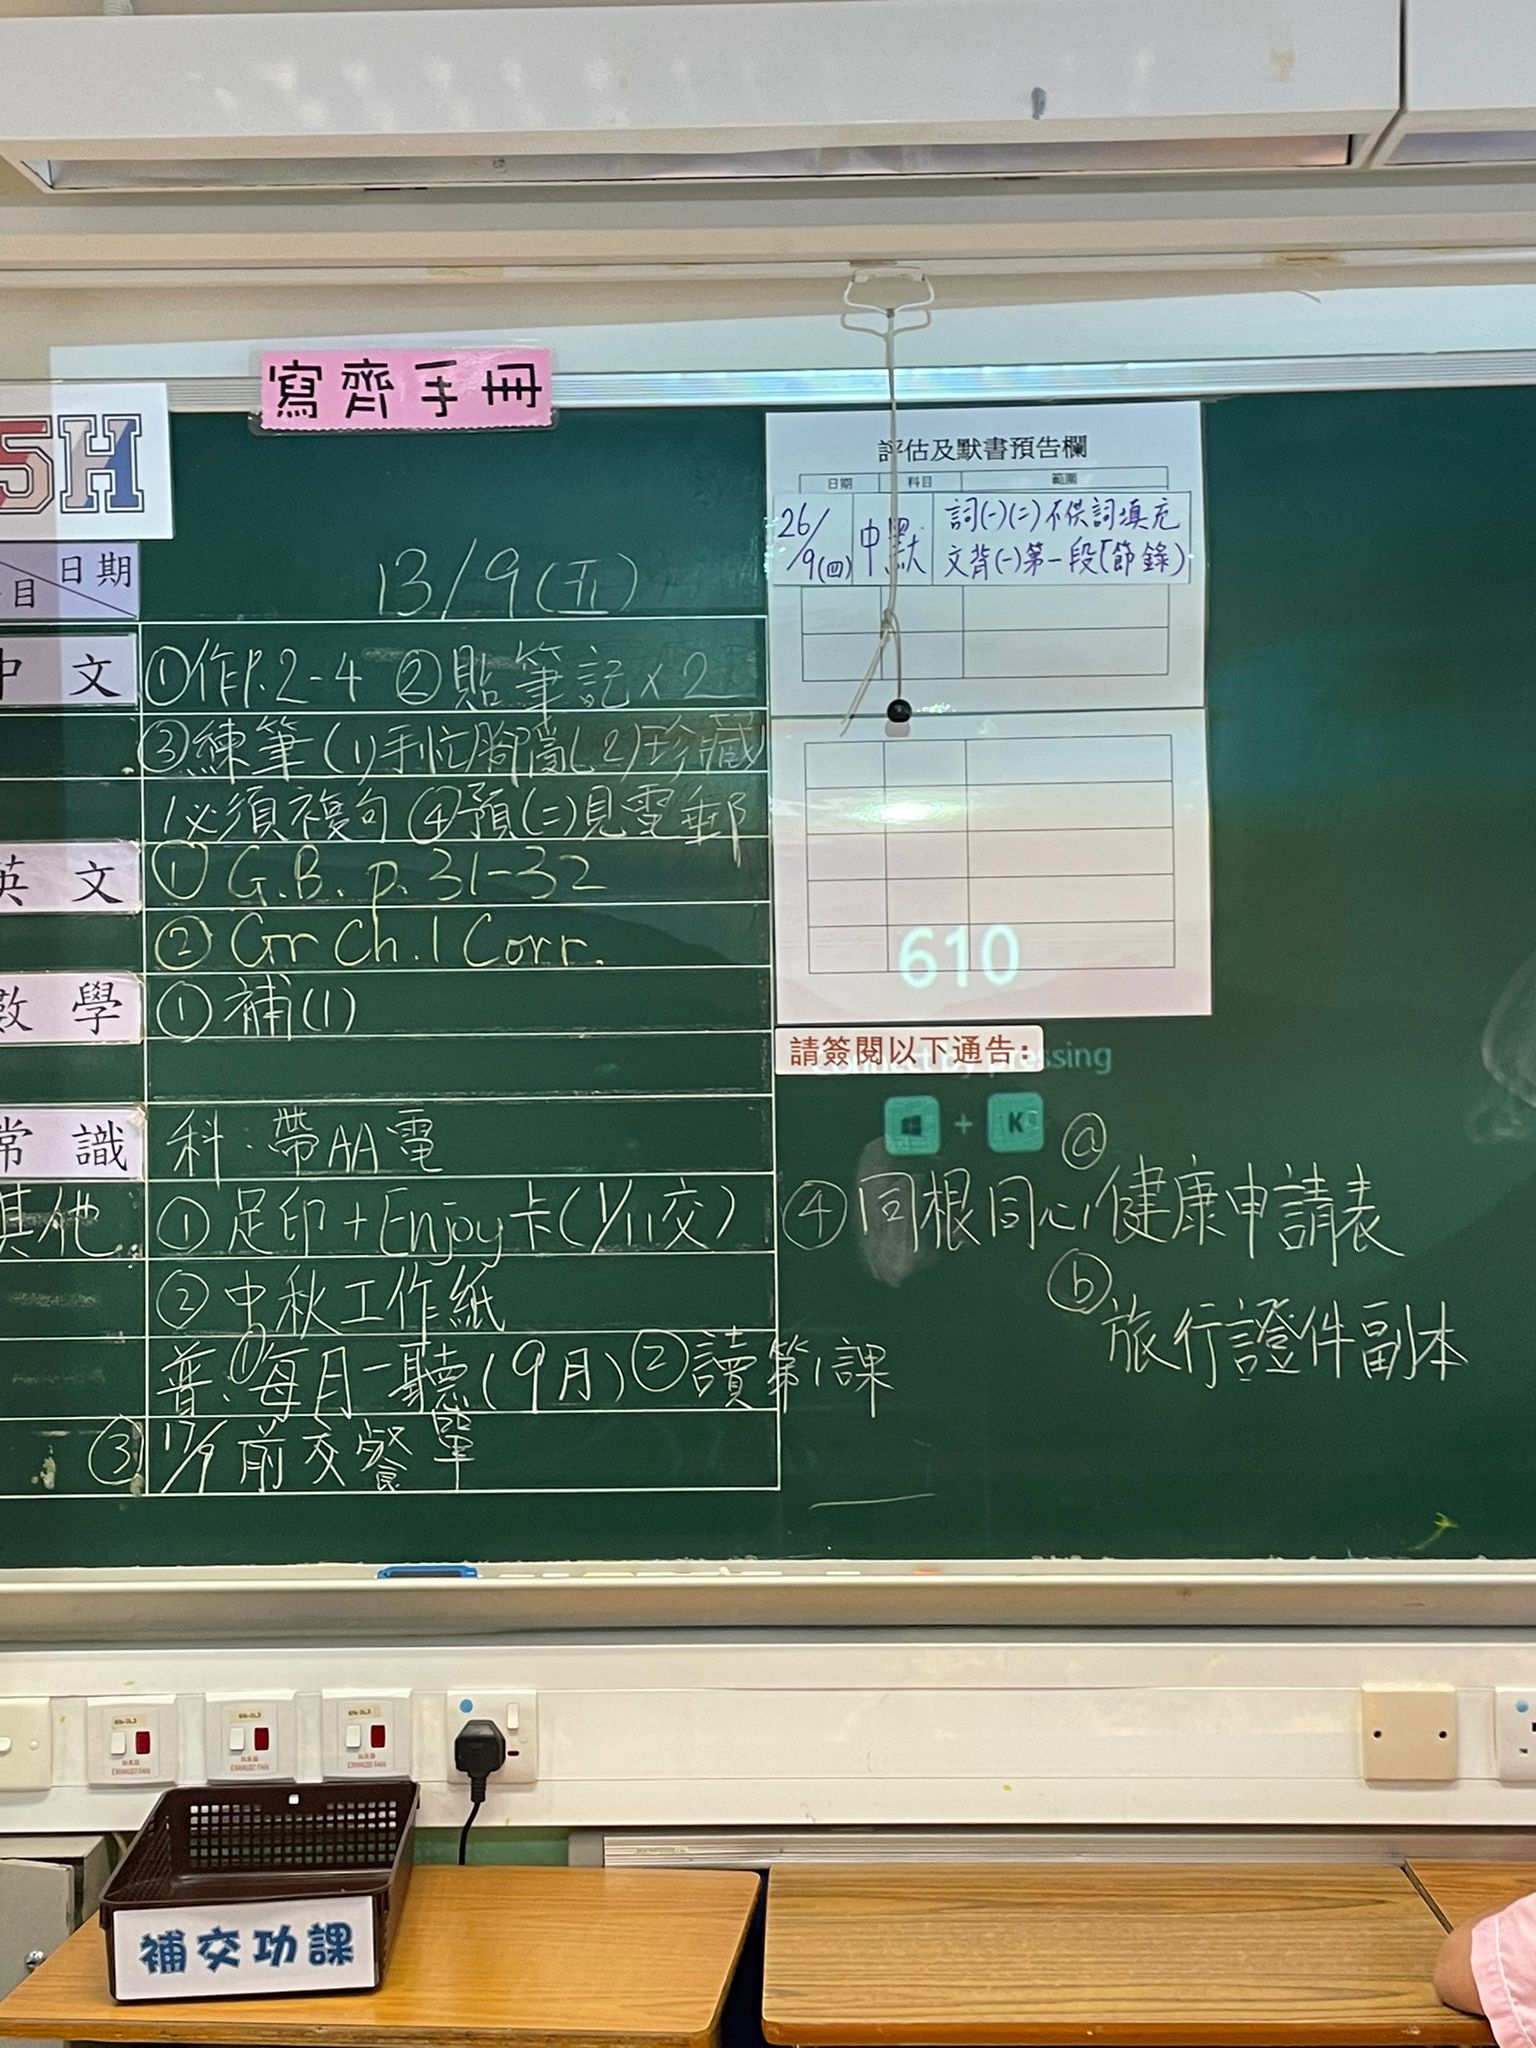 寫齊手冊
5H
日期
目
13/9(五)
中文
①作P.2-4 ②貼筆記x2
③練筆(1)手忙腳亂(2)珍藏
必須複句 ④預(二)見電郵
英文
① G.B. p. 31-32
② Gr Ch.1 Corr.
數學
①補(1)
常識
科:帶AA電
其他
①足印+Enjoy卡(1/11交)
②中秋工作紙
普:①每月一聽(9月)②讀第1課
③17/9前交餐單
評估及默書預告欄
日期 科目 範圍
26/9(四) 中默 詞(一)(二)不供詞填充
文背(一)第一段(節錄)
610
請簽閱以下通告:
pressing
+ K
④同根同心 ⓐ健康申請表
ⓑ旅行證件副本
EXHAUST FAN
EXHAUST FAN
EXHAUST FAN
補交功課